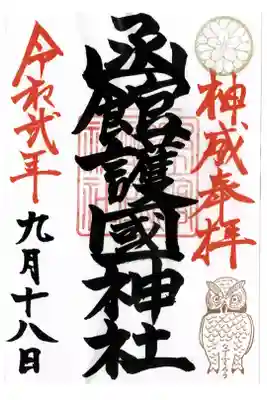 奉拝
函館護國神社
令和弐年
九月十八日